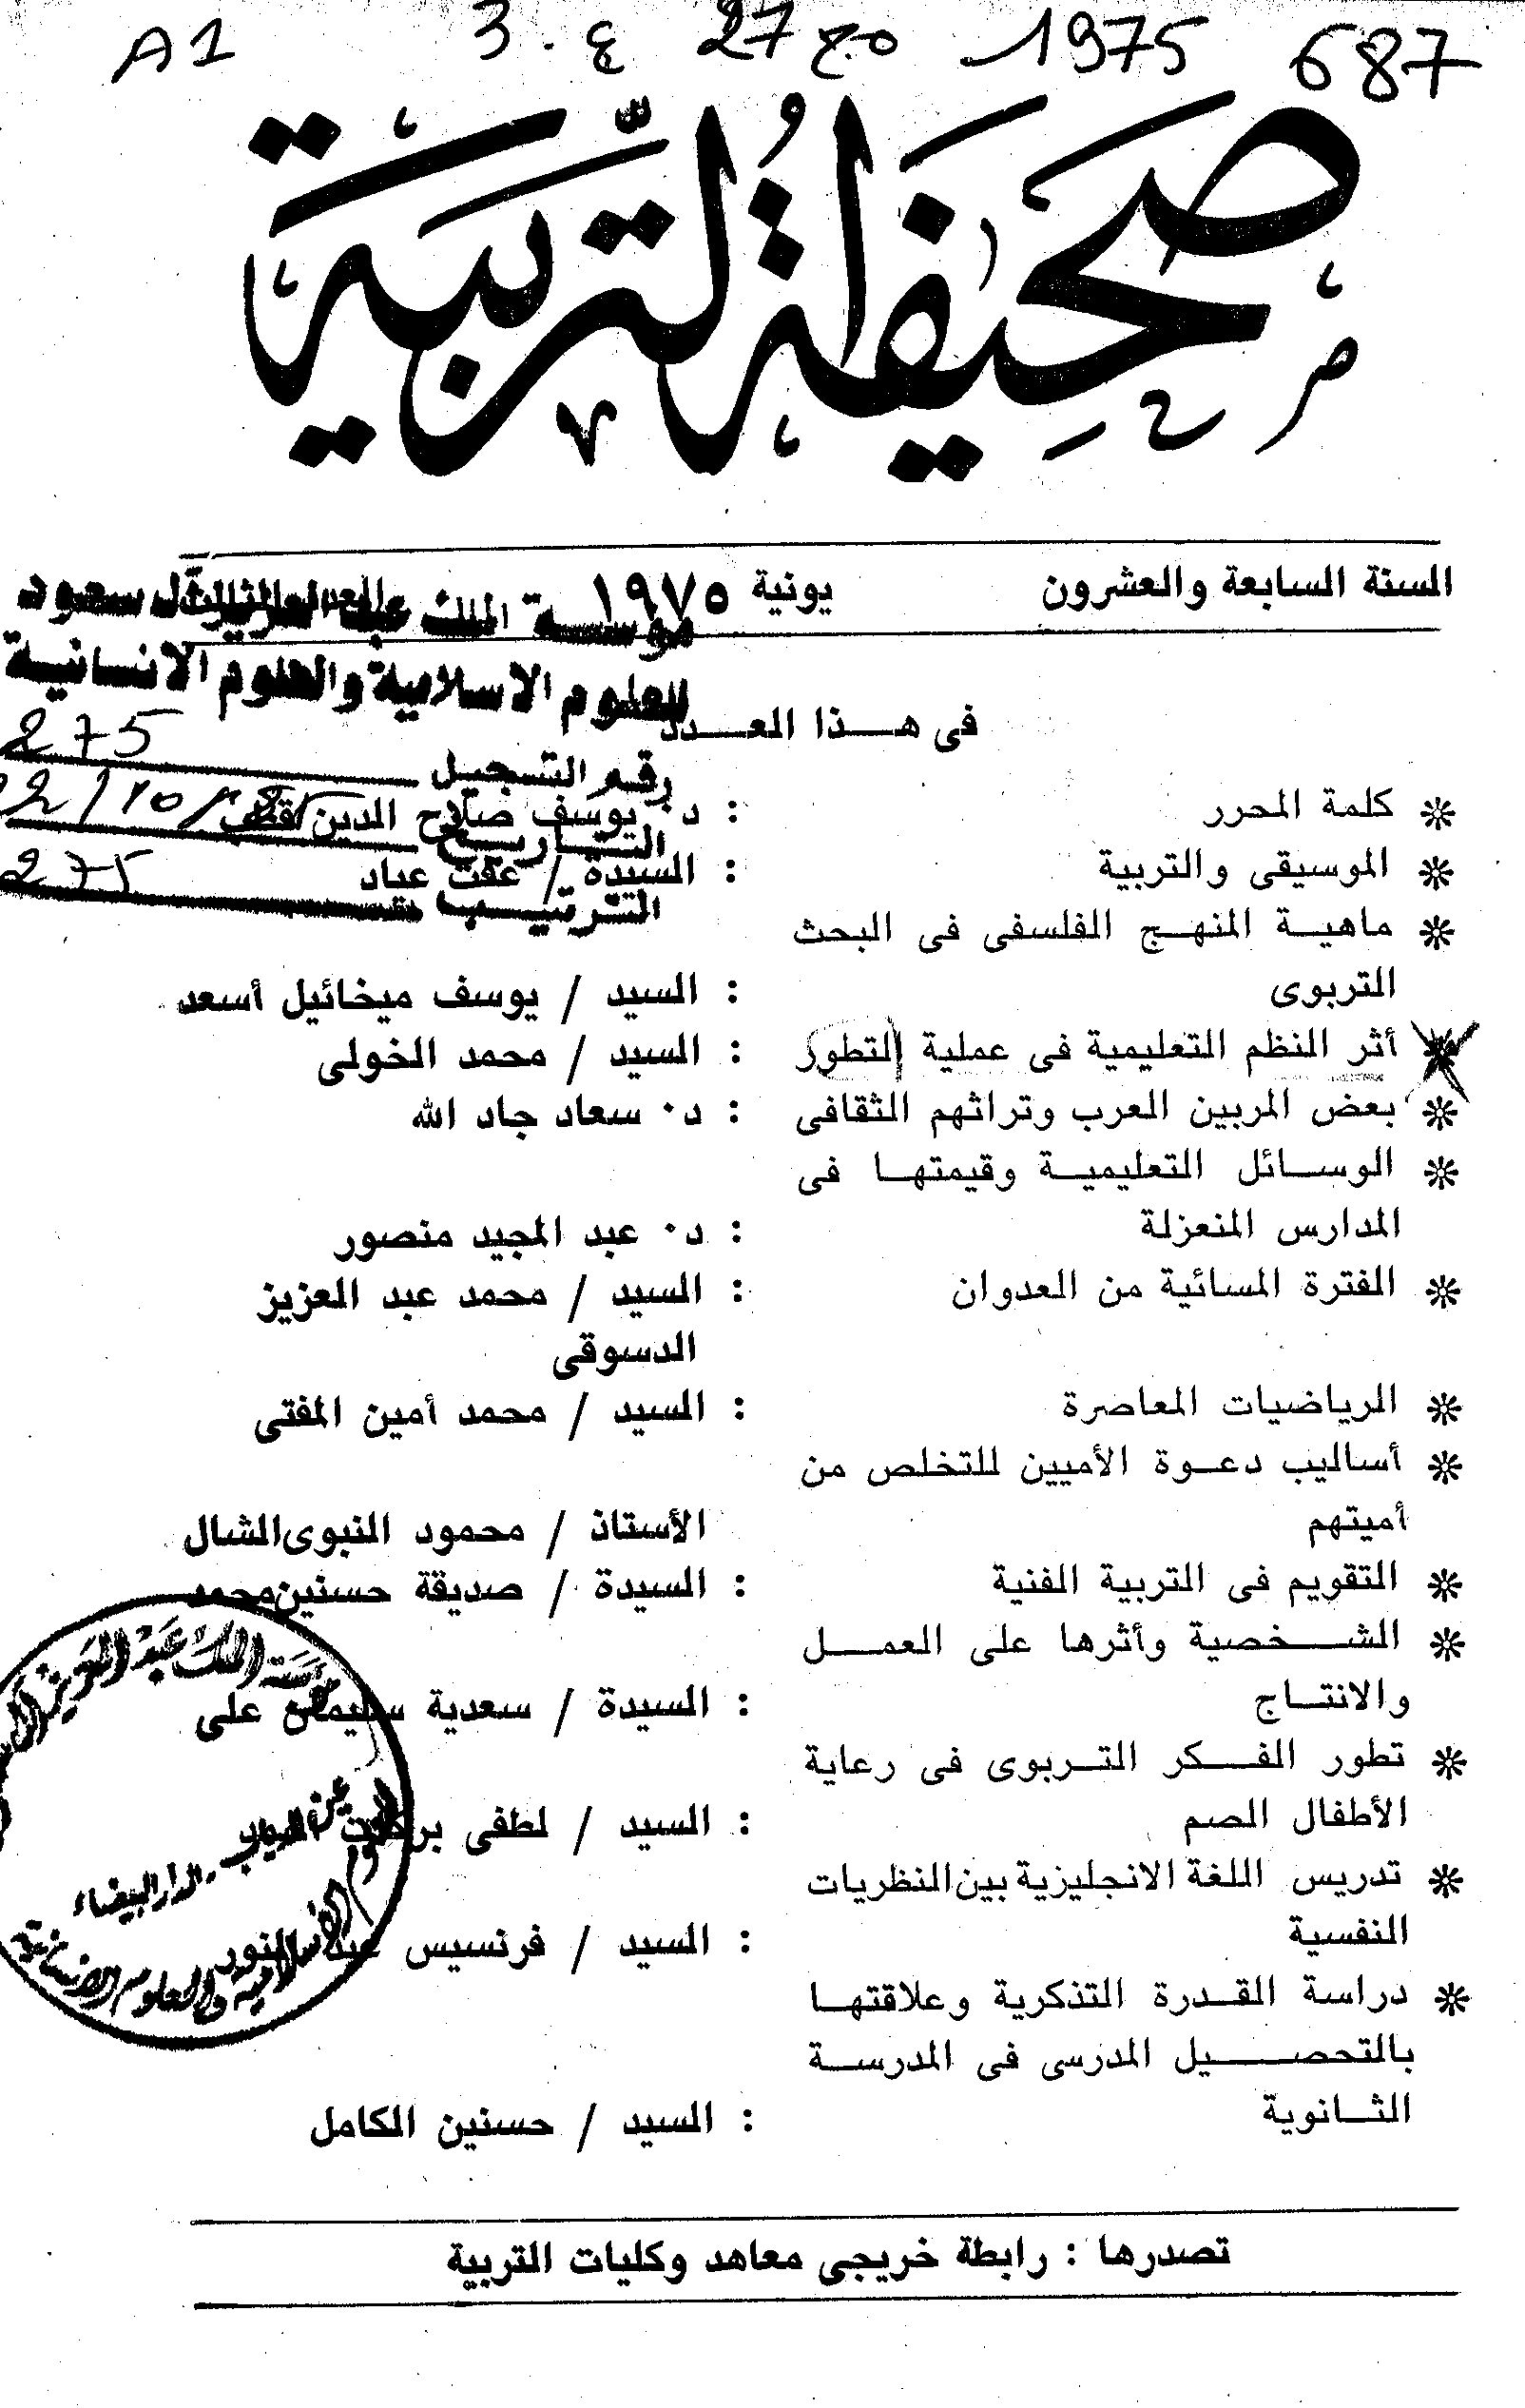 687 1975 مج 27 ع . 3 A1
صحيفة التربية
السنة السابعة والعشرون يونية ١٩٧٥ العدد الثالث
مؤسسة الملك عبد العزيز آل سعود
للعلوم الاسلامية والعلوم الانسانية
فى هـــذا العـــدد
رقم التسجيل 275
التاريخ
الترتيب 275
❊ كلمة المحرر : د٠ يوسف صلاح الدين قطب
❊ الموسيقى والتربية : السيدة / عفت عياد
❊ ماهيـة المنهـج الفلسفى فى البحث
التربوى : السيد / يوسف ميخائيل أسعد
❊ أثر النظم التعليمية فى عملية التطور : السيد / محمد الخولى
❊ بعض المربين العرب وتراثهم الثقافى : د٠ سعاد جاد الله
❊ الوســائل التعليميـة وقيمتهـا فى
المدارس المنعزلة : د٠ عبد المجيد منصور
❊ الفترة المسائية من العدوان : السيد / محمد عبد العزيز
الدسوقى
❊ الرياضيات المعاصرة : السيد / محمد أمين المفتى
❊ أساليب دعـوة الأميين للتخلص من
أميتهم الأستاذ / محمود النبوى الشال
❊ التقويم فى التربية الفنية : السيدة / صديقة حسنين محمد
❊ الشـــخصية وأثرها على العمـــل
والانتــاج : السيدة / سعدية سليمان على
❊ تطور الفـــكر التــربوى فى رعاية
الأطفال الصم : السيد / لطفى بركات أحمد
❊ تدريس اللغة الانجليزية بين النظريات
النفسية : السيد / فرنسيس عبد النور
❊ دراسة القــدرة التذكرية وعلاقتهـا
بالتحصـــــيل المدرسى فى المدرســة
الثــانوية : السيد / حسنين الكامل
مؤسسة الملك عبد العزيز آل
عين الدياب - الدار البيضاء
الاسلامية والعلوم الانسانية
تصدرها : رابطة خريجى معاهد وكليات التربية